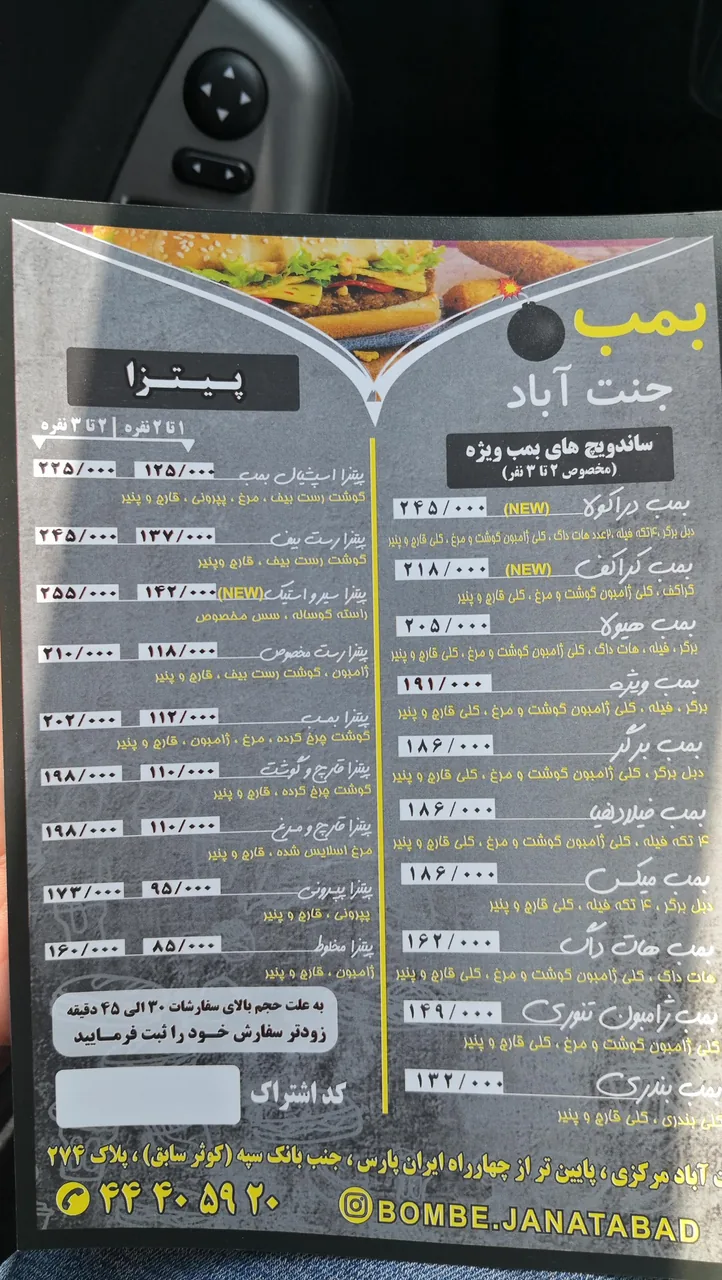 بمب
جنت آباد
ساندویچ های بمب ویژه
(مخصوص ۲ تا ۳ نفر)
بمب دراکولا (NEW) ۲۴۵/۰۰۰
دبل برگر، ۴تکه فیله، ۲عدد هات داگ، کلی ژامبون گوشت و مرغ، کلی قارچ و پنیر
بمب کراکف (NEW) ۲۱۸/۰۰۰
کراکف، کلی ژامبون گوشت و مرغ، کلی قارچ و پنیر
بمب هیولا ۲۰۵/۰۰۰
برگر، فیله، هات داگ، کلی ژامبون گوشت و مرغ، کلی قارچ و پنیر
بمب ویژه ۱۹۱/۰۰۰
برگر، فیله، کلی ژامبون گوشت و مرغ، کلی قارچ و پنیر
بمب برگر ۱۸۶/۰۰۰
دبل برگر، کلی ژامبون گوشت و مرغ، کلی قارچ و پنیر
بمب فیلادلفیا ۱۸۶/۰۰۰
۴ تکه فیله، کلی ژامبون گوشت و مرغ، کلی قارچ و پنیر
بمب میکس ۱۸۶/۰۰۰
دبل برگر، ۴ تکه فیله، کلی قارچ و پنیر
بمب هات داگ ۱۶۲/۰۰۰
هات داگ، کلی ژامبون گوشت و مرغ، کلی قارچ و پنیر
بمب ژامبون تنوری ۱۴۹/۰۰۰
کلی ژامبون گوشت و مرغ، کلی قارچ و پنیر
بمب بندری ۱۳۲/۰۰۰
کلی بندری، کلی قارچ و پنیر
پیتزا
۱ تا ۲ نفره | ۲ تا ۳ نفره
پیتزا اسپشیال بمب ۱۲۵/۰۰۰ ۲۲۵/۰۰۰
گوشت رست بیف، مرغ، پپرونی، قارچ و پنیر
پیتزا رست بیف ۱۳۷/۰۰۰ ۲۴۵/۰۰۰
گوشت رست بیف، قارچ وپنیر
پیتزا سیر و استیک (NEW) ۱۴۲/۰۰۰ ۲۵۵/۰۰۰
راسته گوساله، سس مخصوص
پیتزا رست مخصوص ۱۱۸/۰۰۰ ۲۱۰/۰۰۰
ژامبون، گوشت رست بیف، قارچ و پنیر
پیتزا بمب ۱۱۲/۰۰۰ ۲۰۲/۰۰۰
گوشت چرخ کرده، مرغ، ژامبون، قارچ و پنیر
پیتزا قارچ و گوشت ۱۱۰/۰۰۰ ۱۹۸/۰۰۰
گوشت چرخ کرده، قارچ و پنیر
پیتزا قارچ و مرغ ۱۱۰/۰۰۰ ۱۹۸/۰۰۰
مرغ اسلایس شده، قارچ و پنیر
پیتزا پپرونی ۹۵/۰۰۰ ۱۷۳/۰۰۰
پپرونی، قارچ و پنیر
پیتزا مخلوط ۸۵/۰۰۰ ۱۶۰/۰۰۰
ژامبون، قارچ و پنیر
به علت حجم بالای سفارشات ۳۰ الی ۴۵ دقیقه
زودتر سفارش خود را ثبت فرمایید
کد اشتراک
آباد مرکزی، پایین تر از چهارراه ایران پارس، جنب بانک سپه (کوثر سابق)، پلاک ۲۷۴
۴۴ ۴۰ ۵۹ ۲۰
BOMBE.JANATABAD